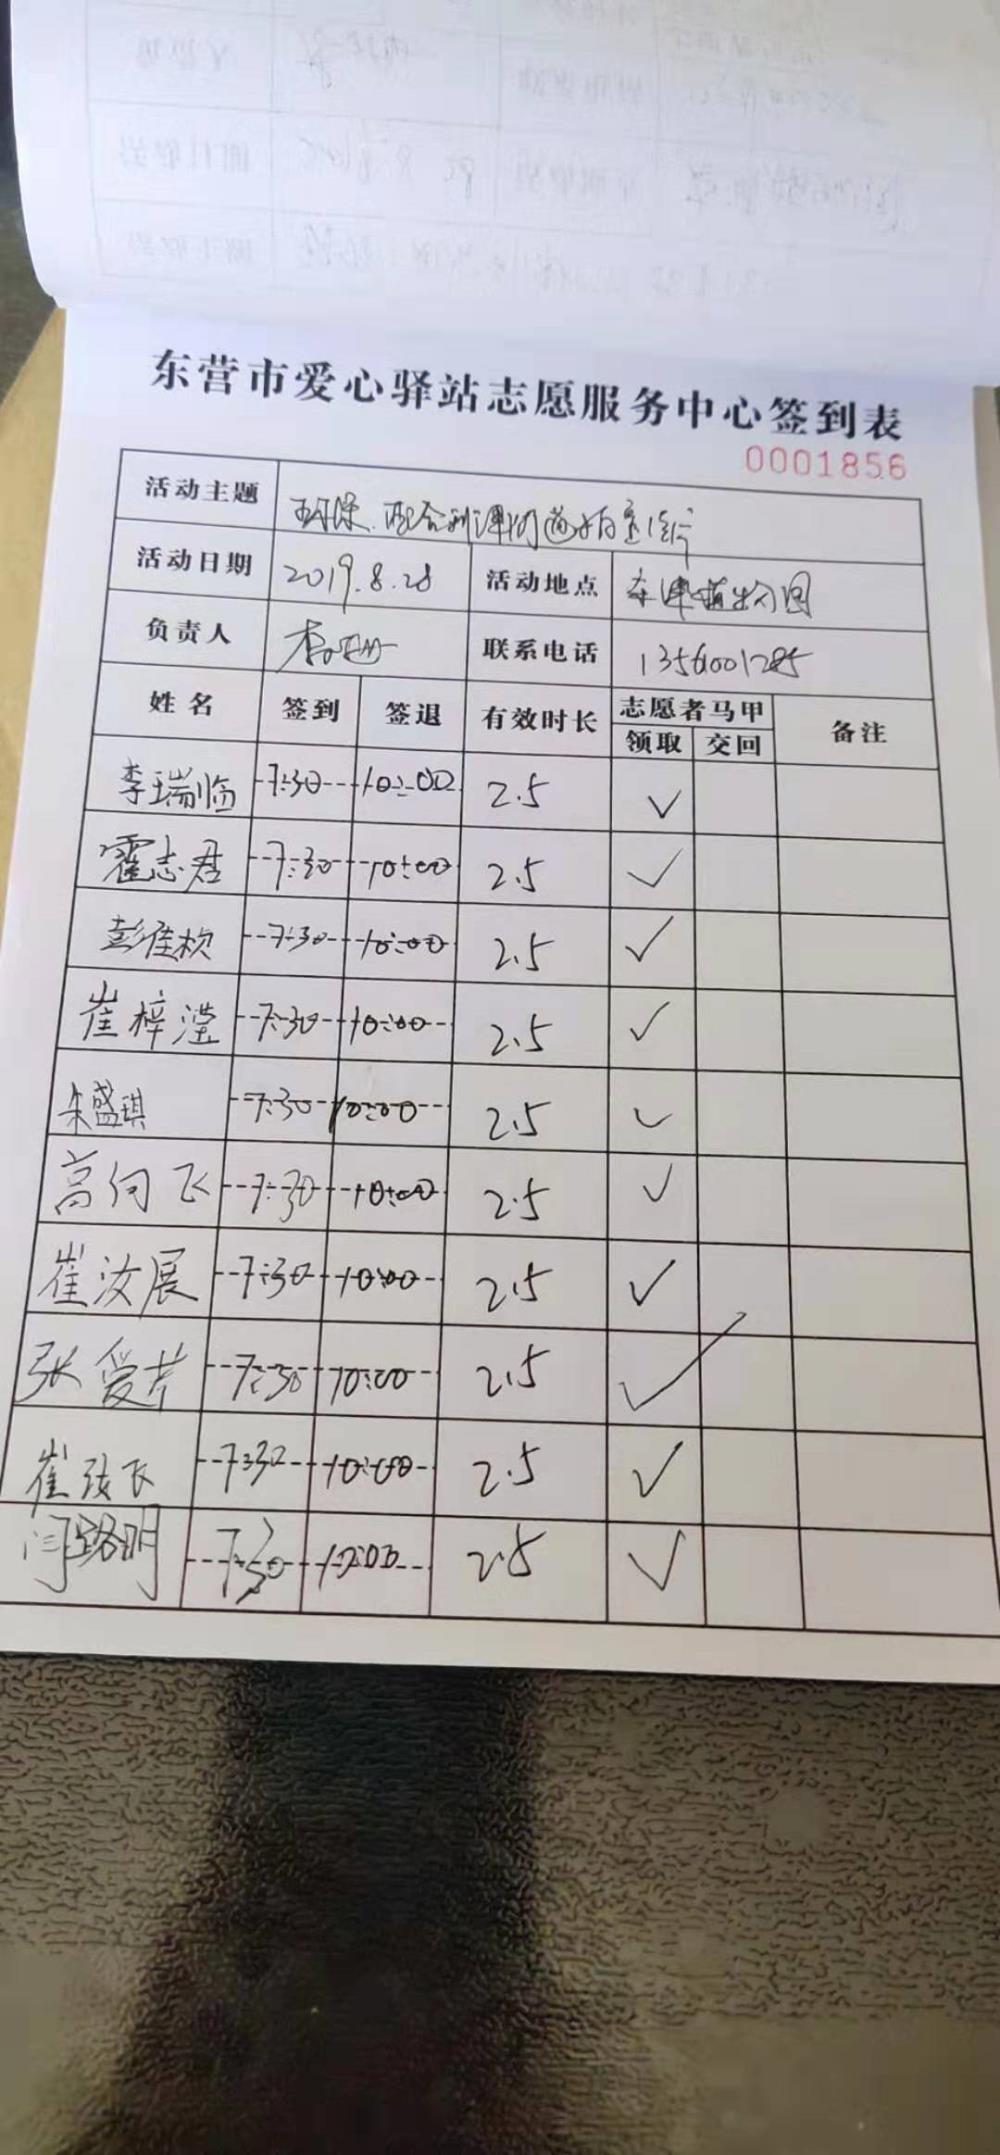 东营市爱心驿站志愿服务中心签到表
0001856
活动主题 环保、配合利津街道
活动日期 2019.8.28 活动地点 东津植物园
负责人 李 联系电话 13561001285
姓名 签到 签退 有效时长 志愿者马甲 备注
领取 交回
李瑞临 7:30 10:00 2.5 ✓
霍志君 7:30 10:00 2.5 ✓
彭佳欣 7:30 10:00 2.5 ✓
崔梓滢 7:30 10:00 2.5 ✓
朱盛琪 7:30 10:00 2.5 ✓
高向飞 7:30 10:00 2.5 ✓
崔汝展 7:30 10:00 2.5 ✓
张爱芹 7:30 10:00 2.5 ✓
崔 飞 7:30 10:00 2.5 ✓
闫路明 7:30 10:00 2.5 ✓